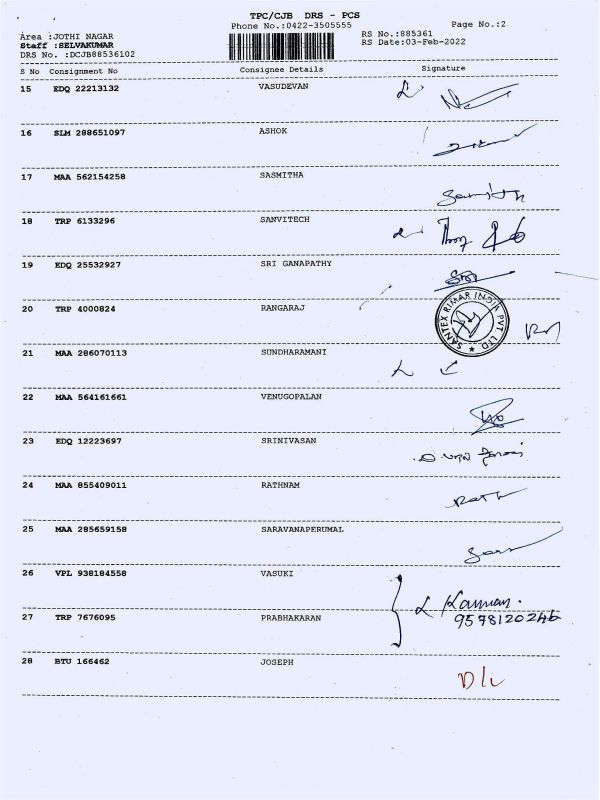 TPC/CJB DRS - PCS
Phone No.:0422-3505555
Page No.:2
Area :JOTHI NAGAR
Staff :SELVAKUMAR
DRS No. :DCJB88536102
RS No.:885361
RS Date:03-Feb-2022
S No Consignment No Consignee Details Signature
15 EDQ 22213132 VASUDEVAN
16 SLM 288651097 ASHOK
17 MAA 562154258 SASMITHA
18 TRP 6133296 SANVITECH
19 EDQ 25532927 SRI GANAPATHY
20 TRP 4000824 RANGARAJ
SANTEX RIMAR INDIA PVT. LTD
21 MAA 286070113 SUNDHARAMANI
22 MAA 564161661 VENUGOPALAN
23 EDQ 12223697 SRINIVASAN
24 MAA 855409011 RATHNAM
25 MAA 285659158 SARAVANAPERUMAL
26 VPL 938184558 VASUKI
Kannan.
27 TRP 7676095 PRABHAKARAN 9578120246
28 BTU 166462 JOSEPH
D/L